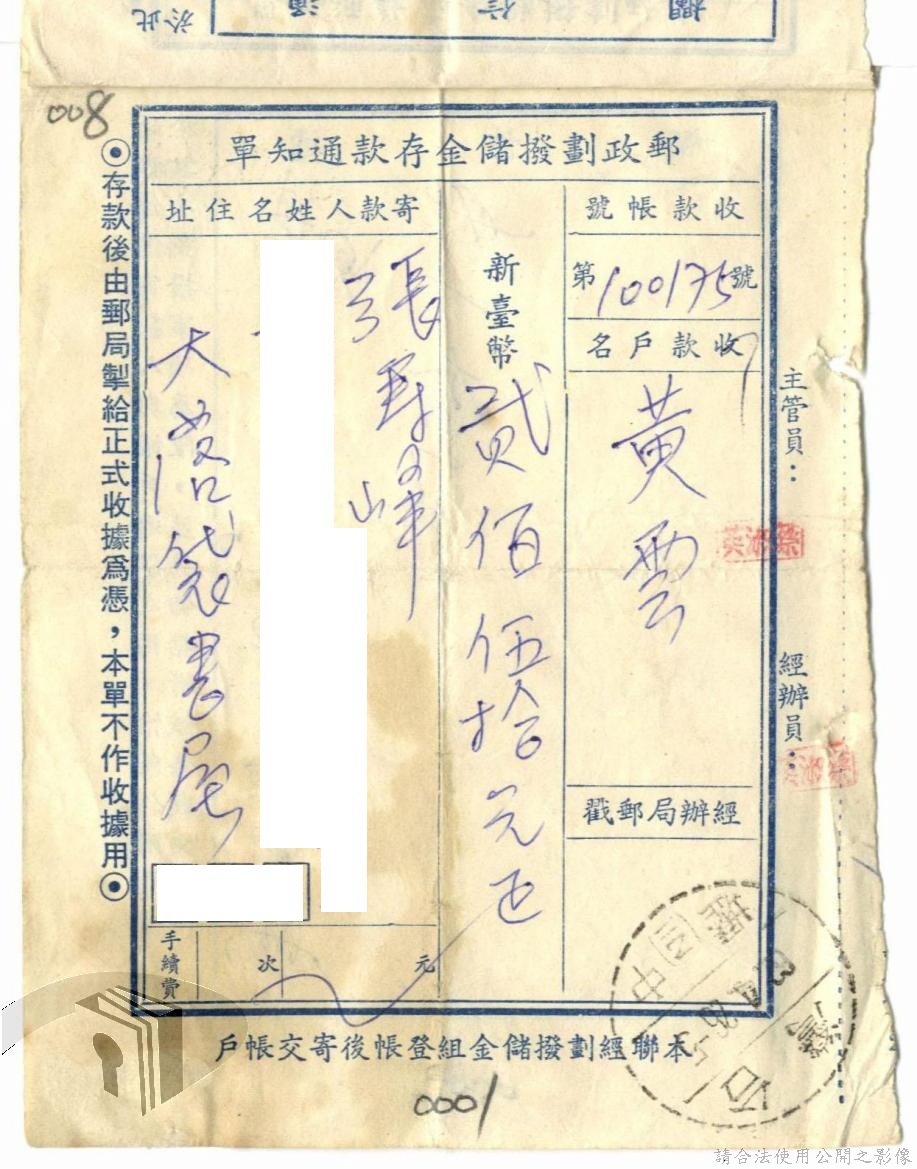 於此
通信欄
008
郵政劃撥儲金存款通知單
收款帳號
第100175號
收款戶名
黃雲
經辦局郵戳
新臺幣
貳佰伍拾元正
寄款人姓名住址
張
峰
大
袋書屋
手續費
次
元
主管員:
經辦員:
⊙存款後由郵局掣給正式收據為憑,本單不作收據用⊙
本聯經劃撥儲金組登帳後寄交帳戶
0001
請合法使用公開之影像